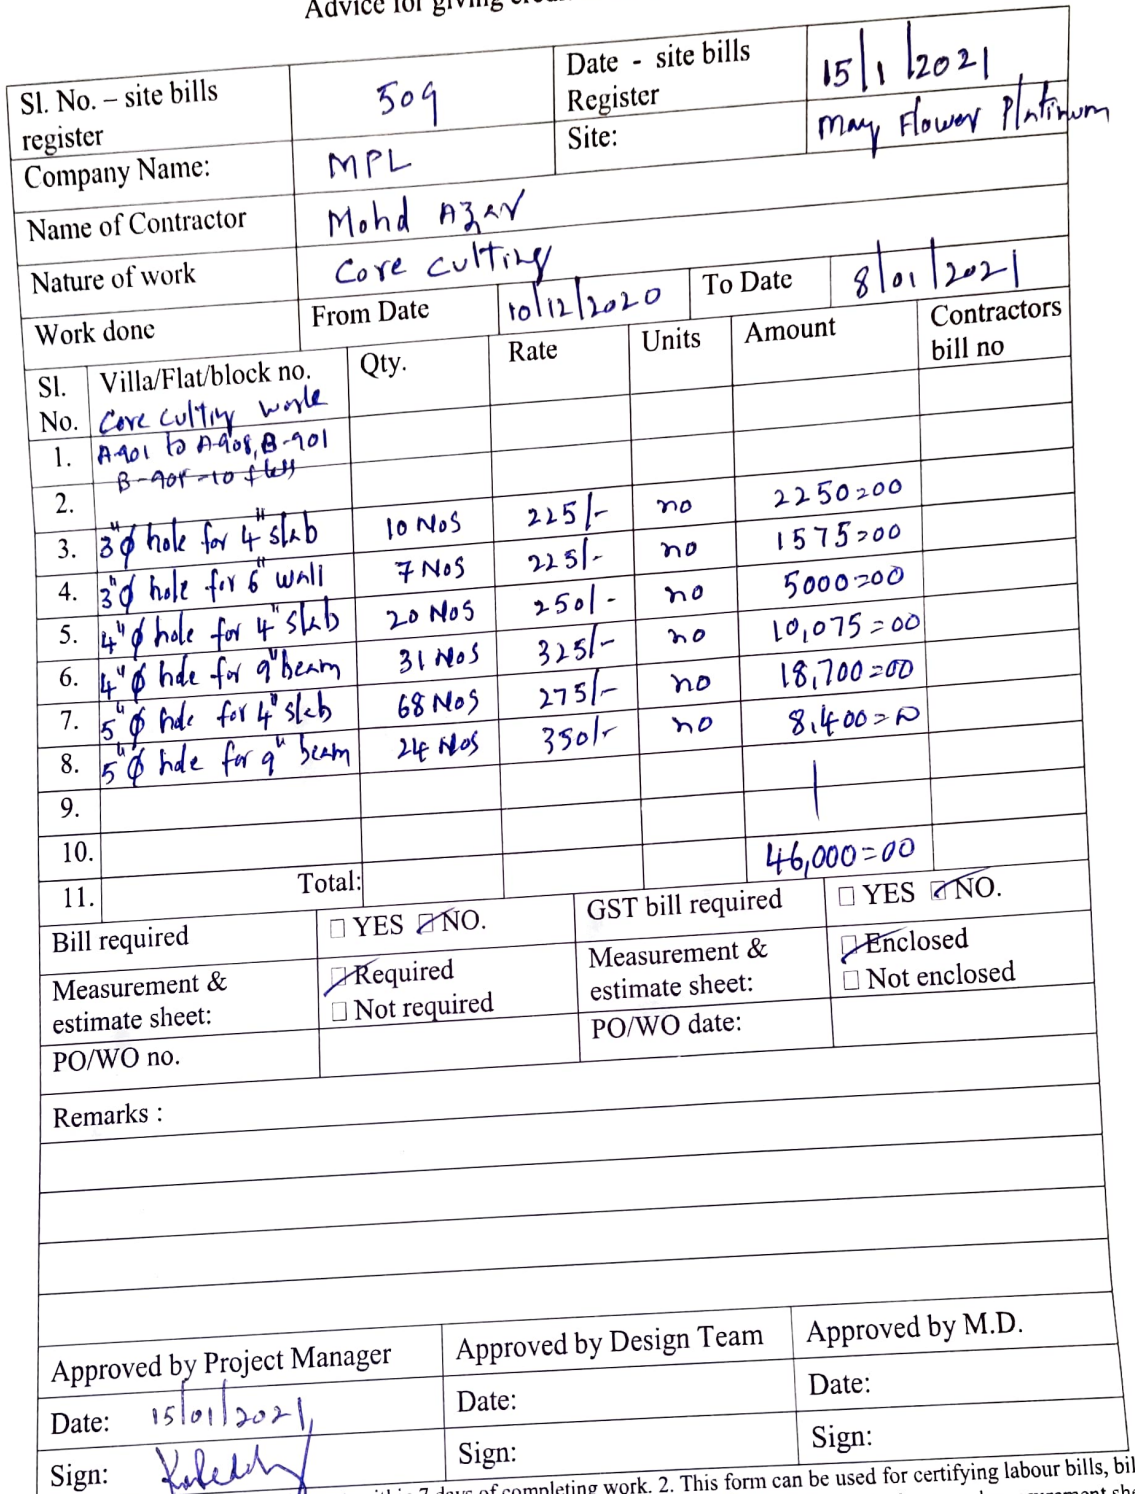 Advice for giving
Sl. No. – site bills register 509 Date - site bills Register 15/1/2021
Company Name: MPL Site: May Flower Platinum
Name of Contractor Mohd Azar
Nature of work Core cutting
Work done From Date 10/12/2020 To Date 8/01/2021
Sl. No. Villa/Flat/block no. Qty. Rate Units Amount Contractors bill no
Core cutting work
1. A-901 to A-908, B-901
2. B-908-10 flats
3. 3"φ hole for 4" slab 10 Nos 225/- no 2250=00
4. 3"φ hole for 6" wall 7 Nos 225/- no 1575=00
5. 4"φ hole for 4" slab 20 Nos 250/- no 5000=00
6. 4"φ hole for 9" beam 31 Nos 325/- no 10,075=00
7. 5"φ hole for 4" slab 68 Nos 275/- no 18,700=00
8. 5"φ hole for 9" beam 24 Nos 350/- no 8,400=00
9.
10.
11. Total: 46,000=00
Bill required □ YES □ NO. GST bill required □ YES □ NO.
Measurement & estimate sheet: □ Required □ Not required Measurement & estimate sheet: □ Enclosed □ Not enclosed
PO/WO no. PO/WO date:
Remarks :
Approved by Project Manager Approved by Design Team Approved by M.D.
Date: 15/01/2021 Date: Date:
Sign: Sign: Sign:
7 days of completing work. 2. This form can be used for certifying labour bills,